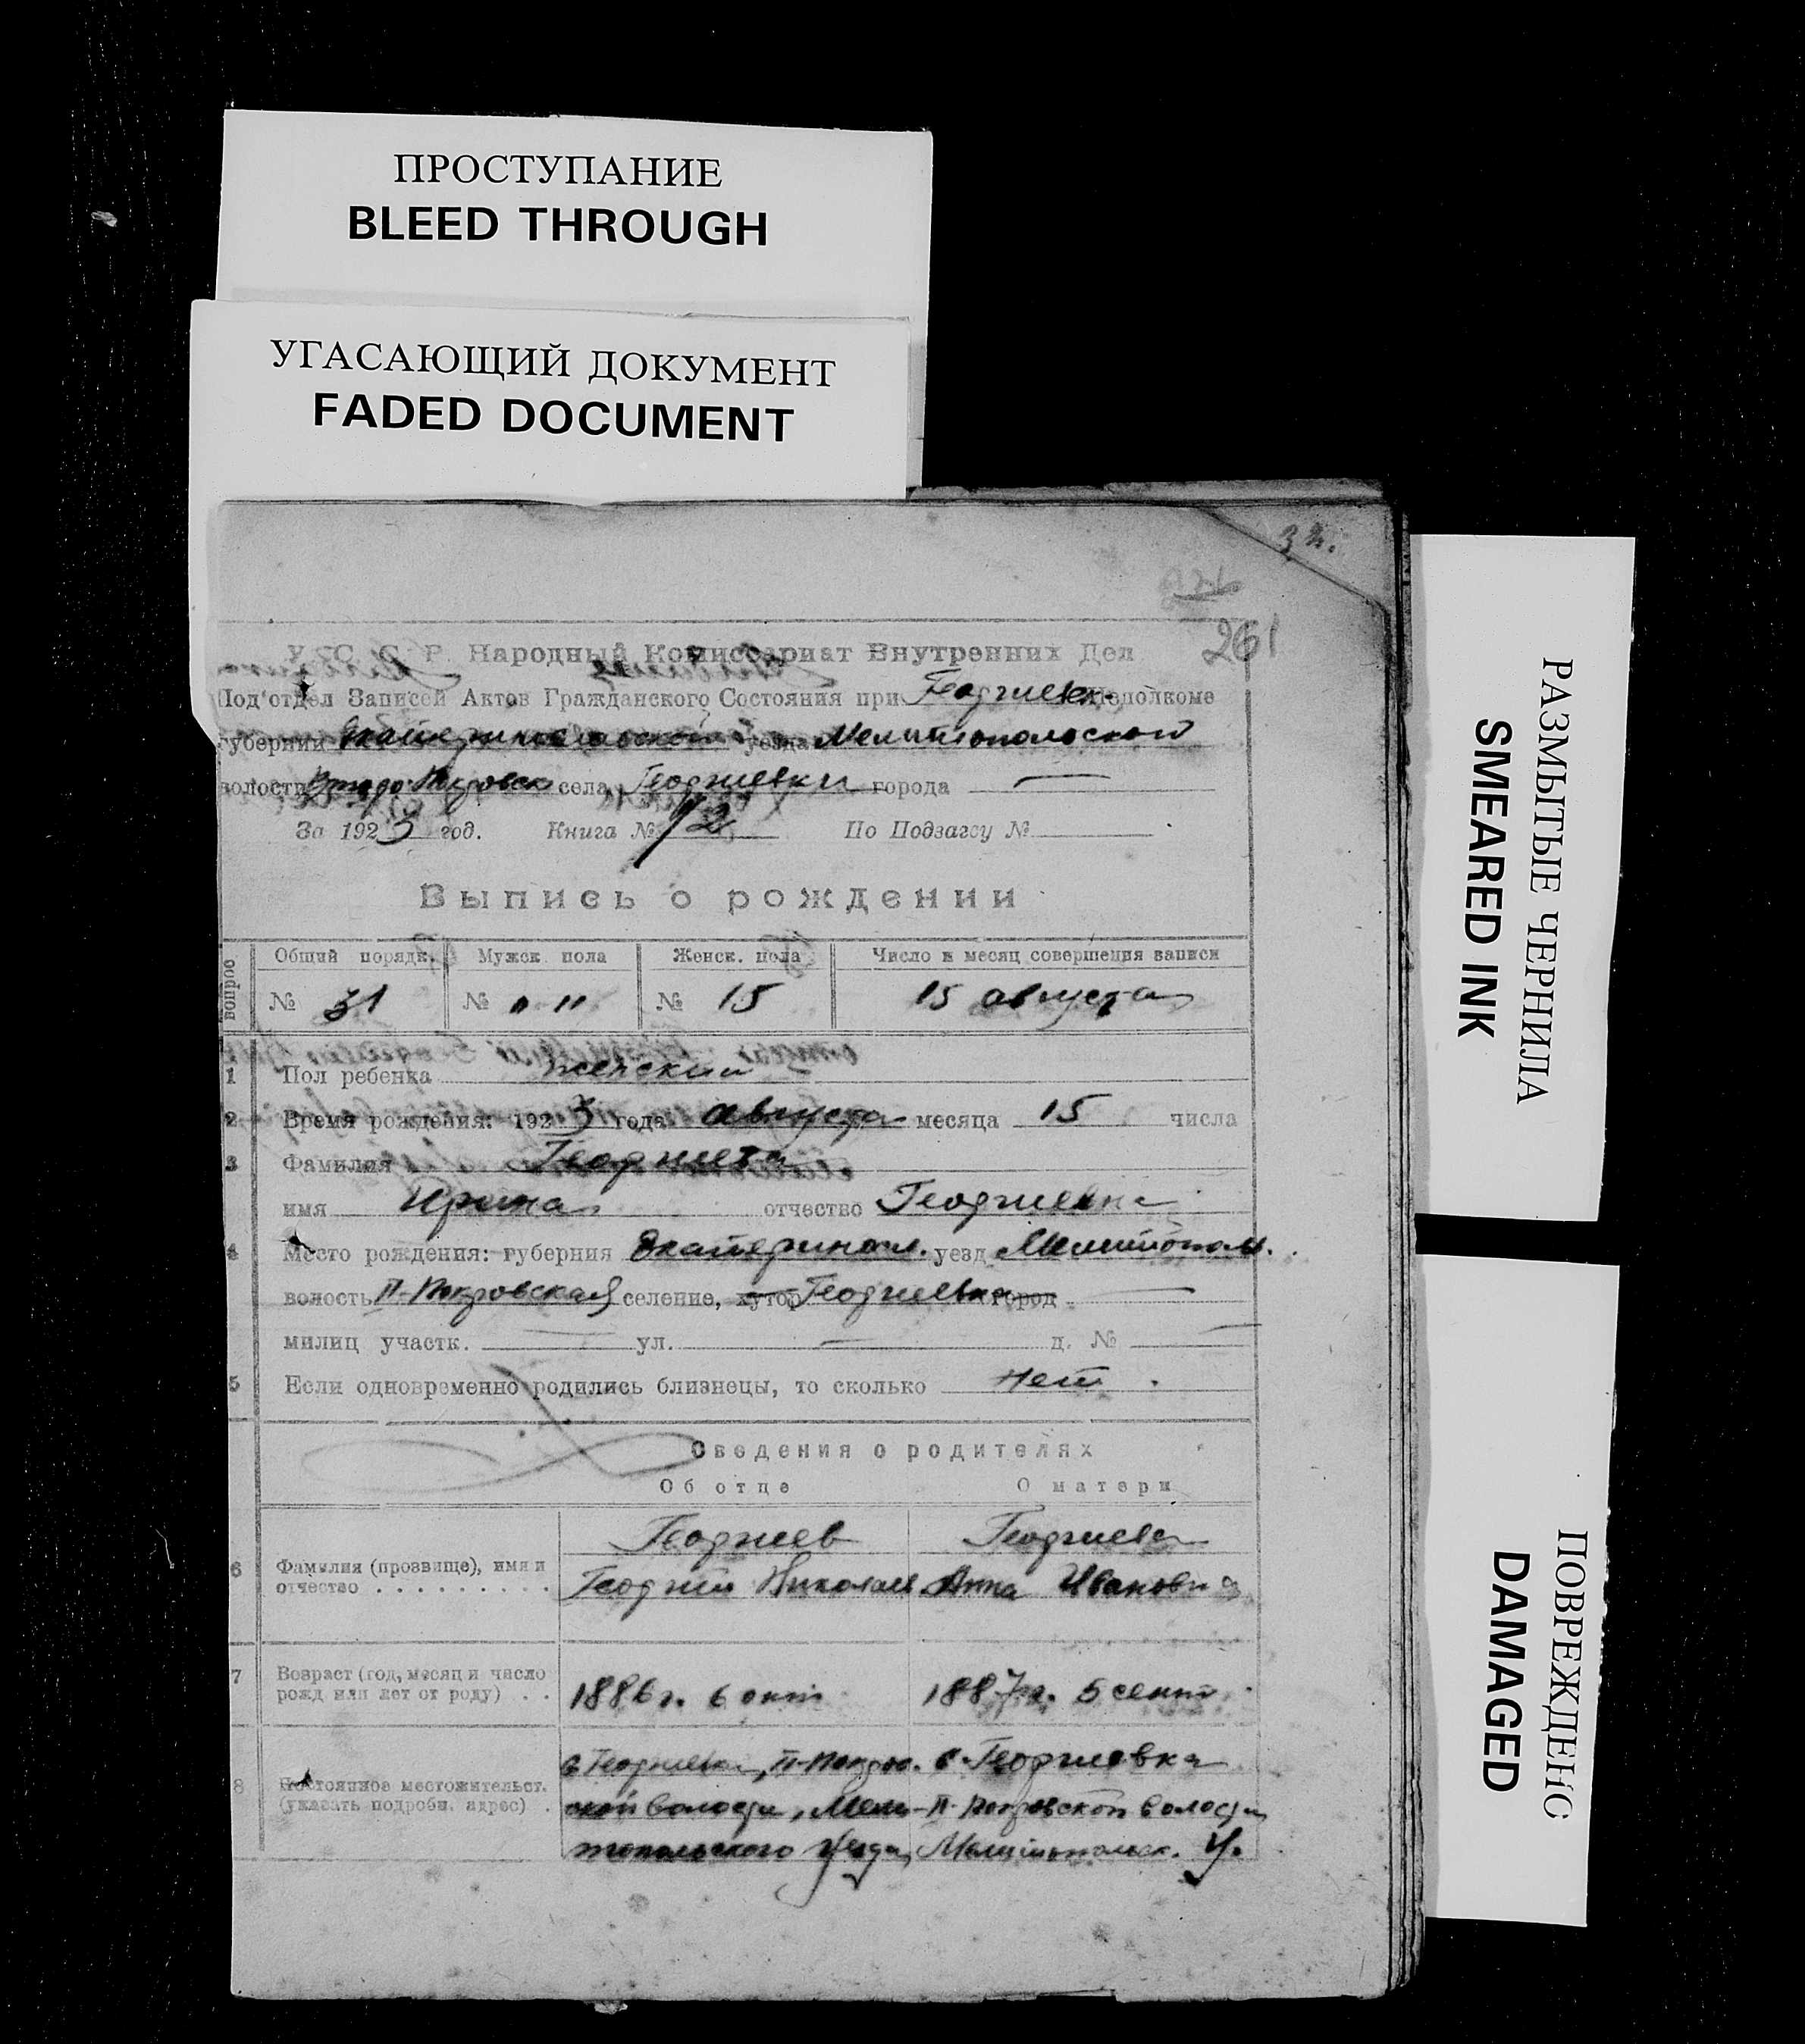 ПРОСТУПАНИЕ
BLEED THROUGH
УГАСАЮЩИЙ ДОКУМЕНТ
FADED DOCUMENT
32.
261
У. С. С. Р. Народный Комиссариат Внутренних Дел
Под'отдел Записей Актов Гражданского Состояния при Георгиевк. Исполкоме
губернии Екатеринославской уезда Мелитопольской
волости Втаро-Покровск села Георгиевки города —
За 1923 год. Книга № 12 По Подзагсу №
Выпись о рождении
вопрос Общий порядк. Мужск. пола Женск. пола Число и месяц совершения записи
№ 31 № " " № 15 15 августа
1 Пол ребенка женский
2 Время рождения: 1923 года августа месяца 15 числа
3 Фамилия Георгиева
имя Ирина отчество Георгиевна
4 Место рождения: губерния Екатеринос. уезд Мелитопол.
волость П-Покровская селение, хутор Георгиевка город —
милиц участк. — ул. — д. № —
5 Если одновременно родились близнецы, то сколько нет .
Сведения о родителях
Об отце О матери
6 Фамилия (прозвище), имя и отчество Георгиев Георгиева
Георгий Николаев Анна Ивановна
7 Возраст (год, месяц и число рожд или лет от роду) 1886 г. 6 окт 1887 г. 5 сент.
8 Постоянное местожительст. (указать подробн. адрес) с Георгиевка, П-Покров- с Георгиевка
ской волости, Мели- П-Покровской волости
топольского уезда, Мелитопольск. У.
РАЗМЫТЫЕ ЧЕРНИЛА
SMEARED INK
ПОВРЕЖДЕНС
DAMAGED